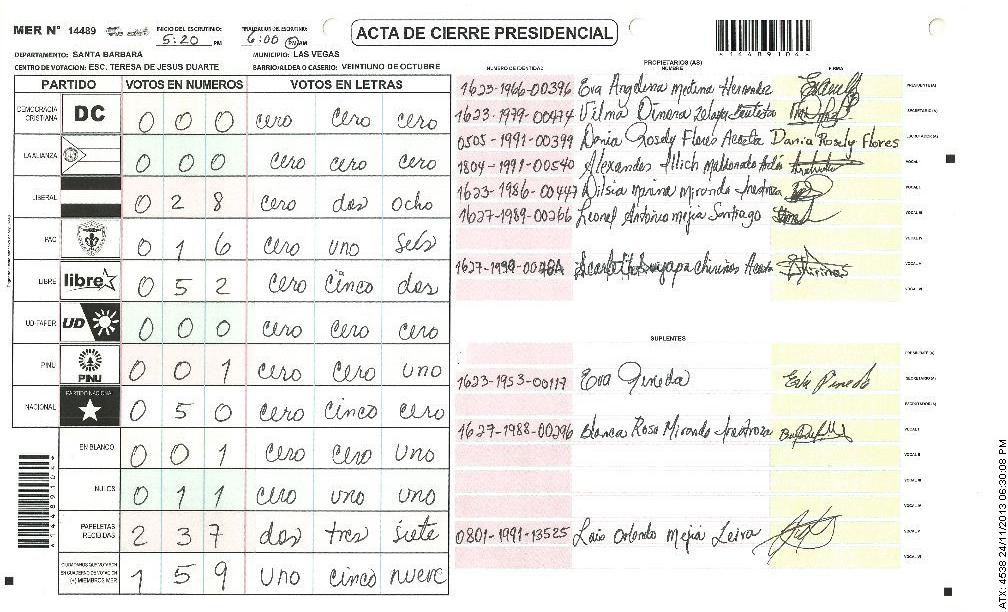 MER N° 14489
INICIO DEL ESCRUTINIO: 5:20 PM
FINALIZACION DEL ESCRUTINIO: 6:00 PM AM
ACTA DE CIERRE PRESIDENCIAL
DEPARTAMENTO: SANTA BARBARA
MUNICIPIO: LAS VEGAS
CENTRO DE VOTACION: ESC. TERESA DE JESUS DUARTE
BARRIO/ALDEA O CASERIO: VEINTIUNO DE OCTUBRE
PARTIDO VOTOS EN NUMEROS VOTOS EN LETRAS
DEMOCRACIA CRISTIANA DC 0 0 0 cero cero cero
LA ALIANZA 0 0 0 cero cero cero
LIBERAL 0 2 8 cero dos ocho
PAC 0 1 6 cero uno seis
LIBRE libre 0 5 2 cero cinco dos
UD-FAPER UD 0 0 0 cero cero cero
PINU PINU 0 0 1 cero cero uno
NACIONAL PARTIDO NACIONAL 0 5 0 cero cinco cero
EN BLANCO 0 0 1 cero cero uno
NULOS 0 1 1 cero uno uno
PAPELETAS RECIBIDAS 2 3 7 dos tres siete
CIUDADANOS QUE VOTARON EN CUADERNO DE VOTACION (+) MIEMBROS MER 1 5 9 uno cinco nueve
PROPIETARIOS (AS)
NUMERO DE IDENTIDAD NOMBRE FIRMA
1623-1966-00396 Eva Angelina Medina Hernandez PRESIDENTE (A)
1623-1979-00474 Vilma Dinora Zelaya Bautista SECRETARIO (A)
0505-1991-00399 Dania Rosely Flores Acosta Dania Rosely Flores ESCRUTADOR (A)
1804-1991-00540 Alexander Illich Maldonado VOCAL I
1623-1986-00447 Dilsia Marina Miranda Inestroza VOCAL II
1627-1989-00266 Leonel Antonio Mejia Santiago VOCAL III
VOCAL IV
Scarleth Suyapa Chirinos Acosta VOCAL V
VOCAL VI
SUPLENTES
PRESIDENTE (A)
1623-1953-00117 Eva Pineda Eva Pineda SECRETARIO (A)
ESCRUTADOR (A)
1627-1988-00296 Blanca Rosa Miranda Inestroza VOCAL I
VOCAL II
VOCAL III
VOCAL IV
0801-1991-13525 Luis Orlando Mejia Leiva VOCAL V
VOCAL VI
ATX: 4538 24/11/2013 06:30:08 PM